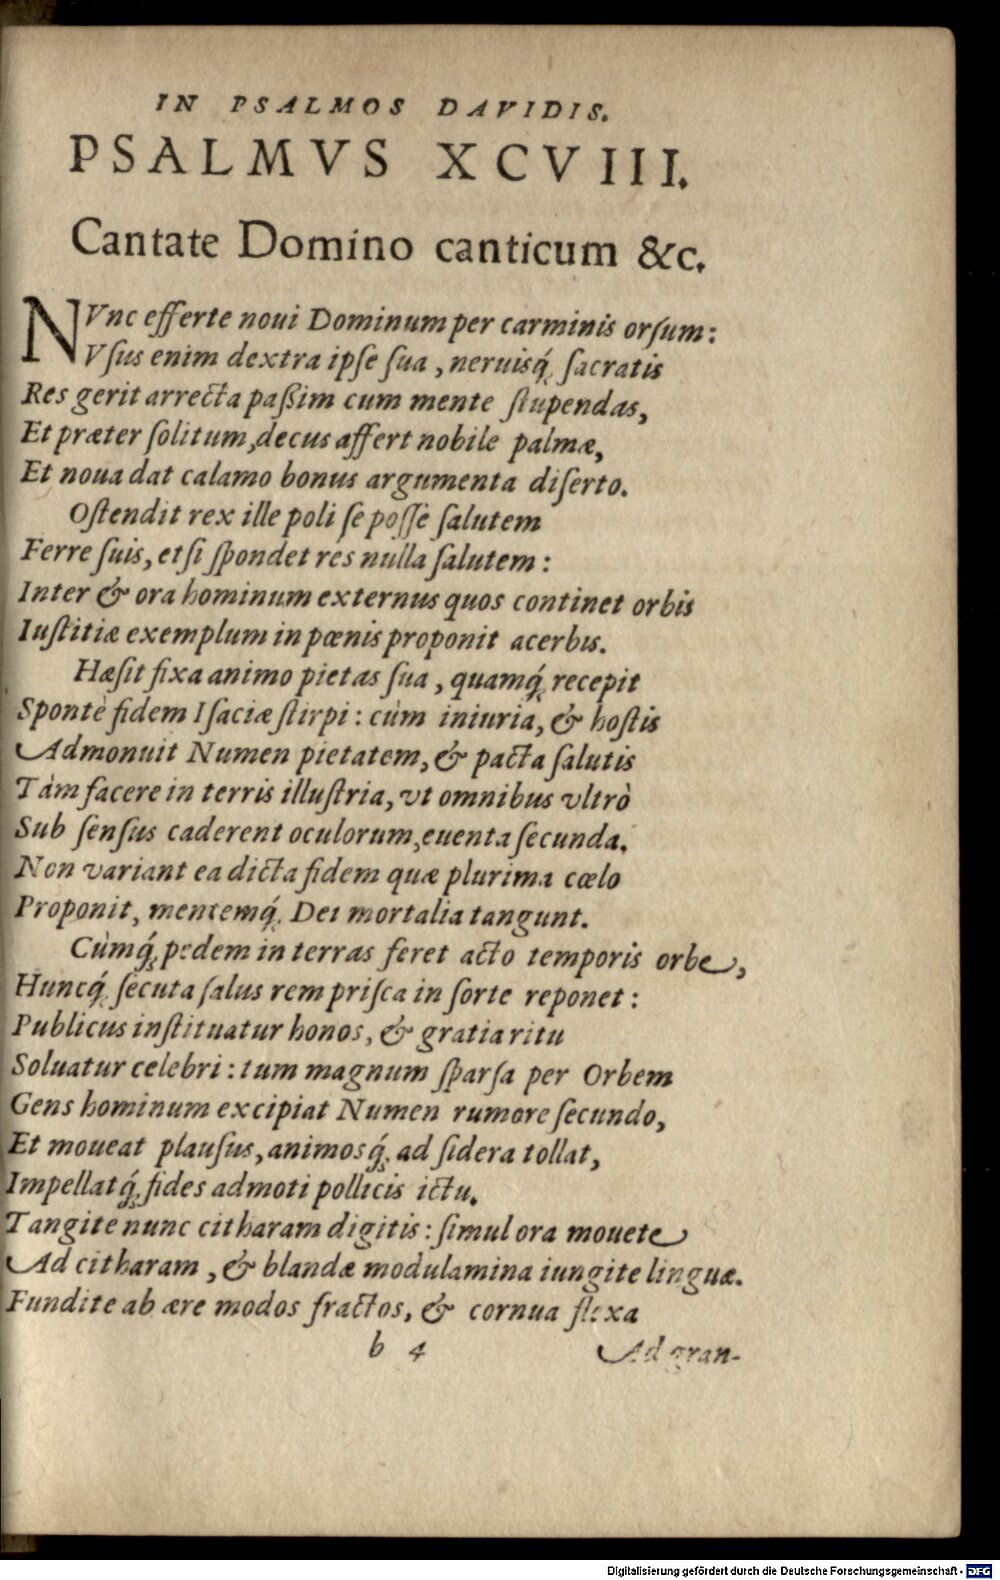 IN PSALMOS DAVIDIS.
PSALMVS XCVIII.
Cantate Domino canticum &c.
NVnc efferte noui Dominum per carminis orſum:
Vſus enim dextra ipſe ſua, neruisq́; ſacratis
Res gerit arrecta paßim cum mente ſtupendas,
Et præter ſolitum, decus affert nobile palmæ,
Et noua dat calamo bonus argumenta diſerto.
Oſtendit rex ille poli ſe poſſe ſalutem
Ferre ſuis, etſi ſpondet res nulla ſalutem:
Inter & ora hominum externus quos continet orbis
Iuſtitiæ exemplum in pœnis proponit acerbis.
Hæſit fixa animo pietas ſua, quamq́; recepit
Spontè fidem Iſaciæ ſtirpi: cùm iniuria, & hoſtis
Admonuit Numen pietatem, & pacta ſalutis
Tàm facere in terris illuſtria, vt omnibus vltrò
Sub ſenſus caderent oculorum, euenta ſecunda.
Non variant ea dicta fidem quæ plurima cœlo
Proponit, mentemq́; Dei mortalia tangunt.
Cùmq́; pedem in terras feret acto temporis orbe,
Huncq́; ſecuta ſalus rem priſca in ſorte reponet:
Publicus inſtituatur honos, & gratia ritu
Soluatur celebri: tum magnum ſparſa per Orbem
Gens hominum excipiat Numen rumore ſecundo,
Et moueat plauſus, animosq́; ad ſidera tollat,
Impellatq́; fides admoti pollicis ictu.
Tangite nunc citharam digitis: ſimul ora mouete
Ad citharam, & blandæ modulamina iungite linguæ.
Fundite ab ære modos fractos, & cornua flexa
b 4 Ad gran-
Digitalisierung gefördert durch die Deutsche Forschungsgemeinschaft - DFG